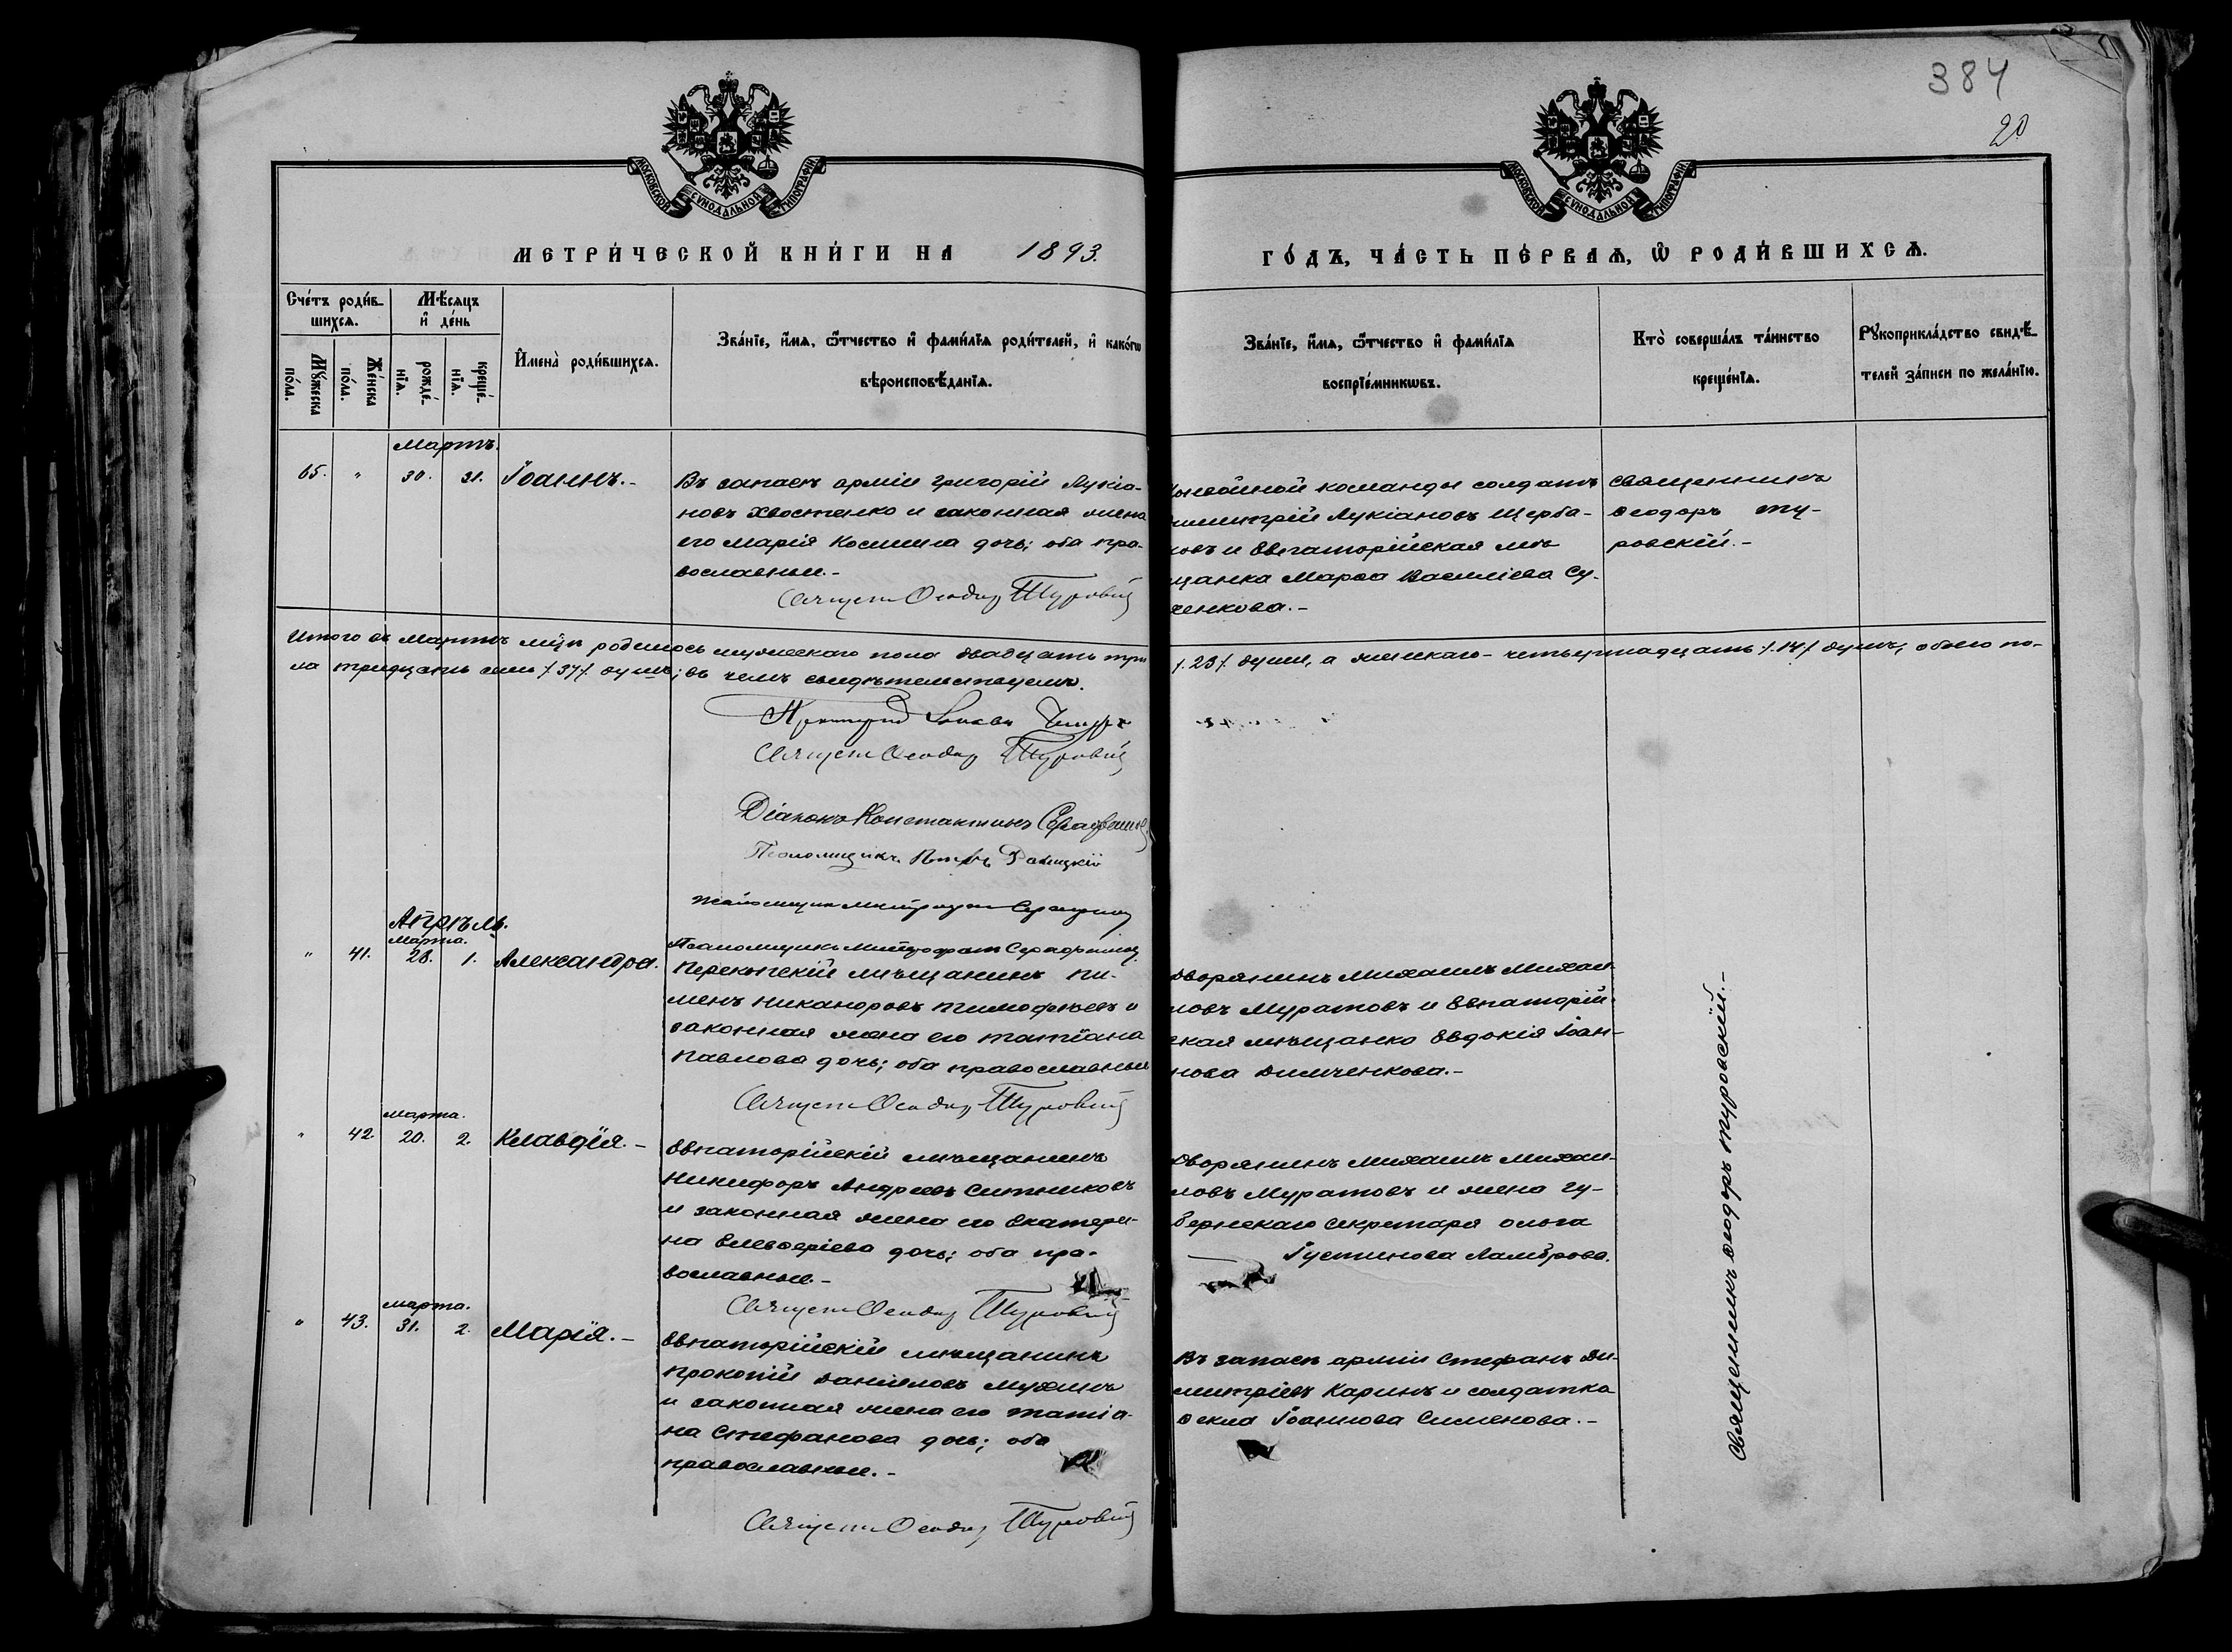 384
20
МОСКОВСКОЙ СѴНОДАЛЬНОЙ ТИПОГРАФІИ
МОСКОВСКОЙ СѴНОДАЛЬНОЙ ТИПОГРАФІИ
МЕТРИ́ЧЕСКОЙ КНИ́ГИ НА 1893.
ГО́ДЪ, ЧА́СТЬ ПЕ́РВАѦ, Ѿ РОДИ́ВШИХСѦ.
Сче́тъ роди́в-
шихсѧ.
Мѣ́сяцъ
и҆ де́нь
Мꙋ́жеска
по́ла.
Же́нска
по́ла.
рожде́-
нїѧ.
креще́-
нїѧ.
И҆мена̀ роди́вшихсѧ.
Зва́нїе, и҆́мѧ, ѻ҆́тчество и҆ фамі́лїѧ роди́телей, и҆ како́гѡ
вѣроисповѣ́данїѧ.
Зва́нїе, и҆́мѧ, ѻ҆́тчество и҆ фамі́лїѧ
воспрїе́мникѡвъ.
Кто̀ соверша́лъ та́инство
креще́нїѧ.
Рꙋкоприкла́дство свидѣ́-
телей за́писи по жела́нїю.
Мартъ.
65. " 30. 31. Іоаннъ.-
Въ запасѣ арміи Григорій Лукіа-
новъ Хвостенко и законная жена
его Марія Космина дочь; оба пра-
вославные.-
Священ Ѳеодор Туровскій
конвойной команды солдатъ
Димитрій Лукіановъ Щерба-
ковъ и Евпаторійская мѣ
щанка Марѳа Василіева Су-
ченкова.-
Священникъ
Ѳеодоръ Ту-
ровскій.-
Итого въ Мартѣ мцѣ родилось мужескаго пола двадцать три /.23/. души, а женскаго - четырнадцать /.14/. душъ, обоего по-
ла тридцать семь /.37/. душъ; въ чемъ свидѣтельствуемъ.
Священ Ѳеодор Туровскій
Діаконъ Константинъ
Псаломщикъ Петръ
Апрѣль.
Псаломщикъ Митрофан
марта.
" 41. 28. 1. Александра.
Перекопскій мѣщанинъ Пи-
менъ Никаноровъ Тимофѣевъ и
законная жена его Татіана
Павлова дочь; оба православные
Священ Ѳеодор Туровскій
Дворянинъ Михаилъ Михаи-
ловъ Муратовъ и Евпаторій-
ская мѣщанка Евдокія Іоан-
нова Димченкова.-
марта.
" 42. 20. 2. Клавдія.-
Евпаторійскій мѣщанинъ
Никифоръ Андреевъ Ситниковъ
и законная жена его Екатери-
на Елевѳеріева дочь; оба пра-
вославные.-
Священ Ѳеодор Туровскій
Дворянинъ Михаилъ Михаи-
ловъ Муратовъ и жена гу-
бернскаго секретаря Ольга
Іустинова Ламброва.
марта.
" 43. 31. 2. Марія.-
Евпаторійскій мѣщанинъ
Прокопій Даніиловъ Мухинъ
и законная жена его Татіа-
на Стефанова дочь; оба
православные.-
Священ Ѳеодор Туровскій
Въ запасѣ арміи Стефанъ Ди-
митріевъ Каринъ и солдатка
Ѳекла Іоаннова Сименова.-
Священникъ Ѳеодоръ Туровскій.-